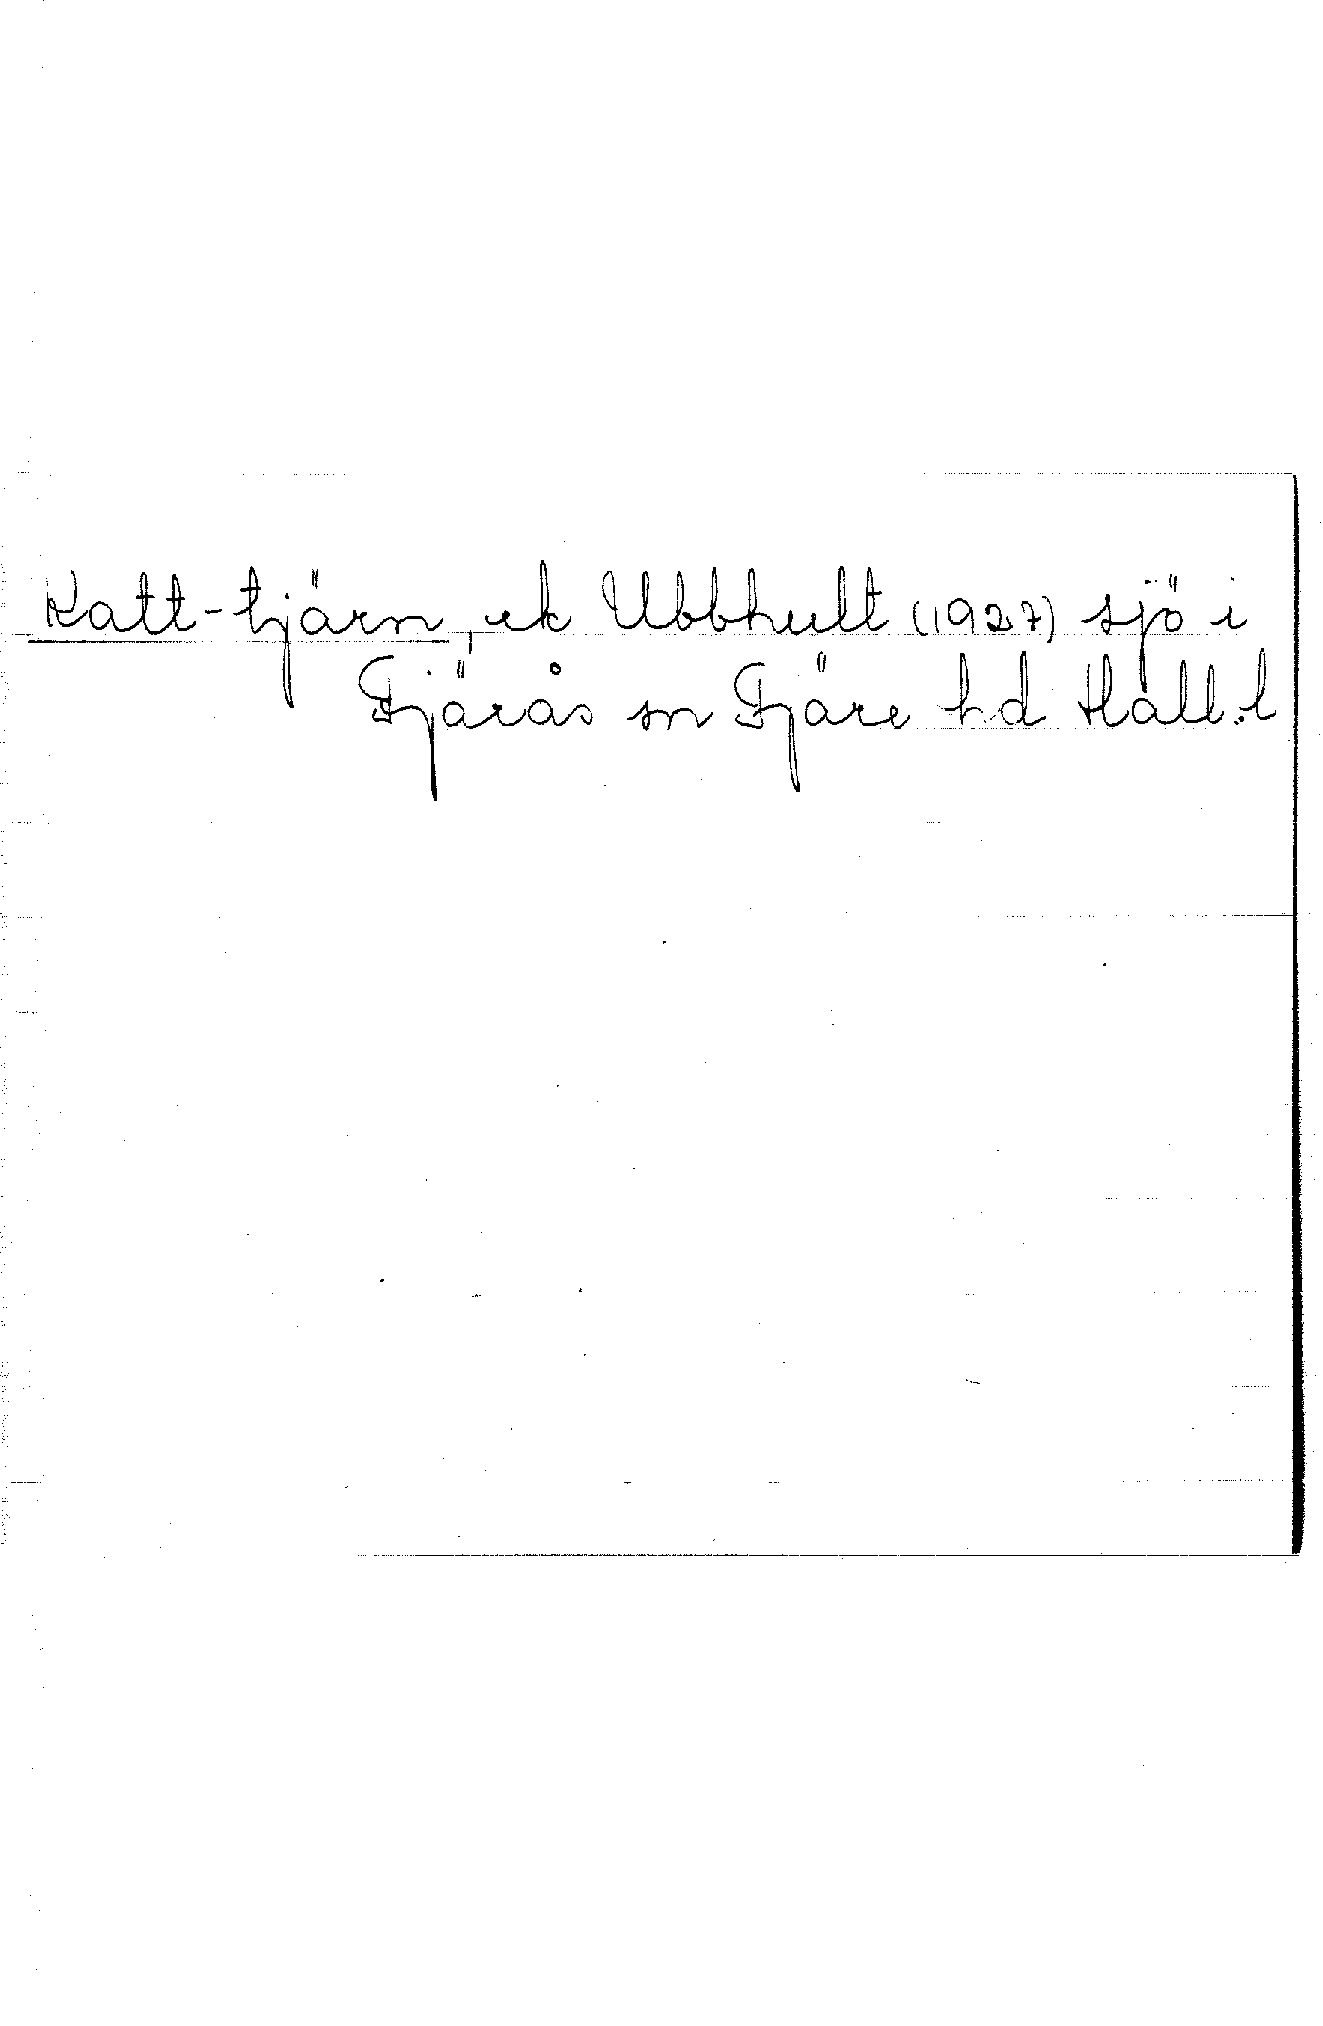 Katt-tjärn, ek Ubbhult (1927) sjö i
Fjärås sn Fjäre hd Hall.l